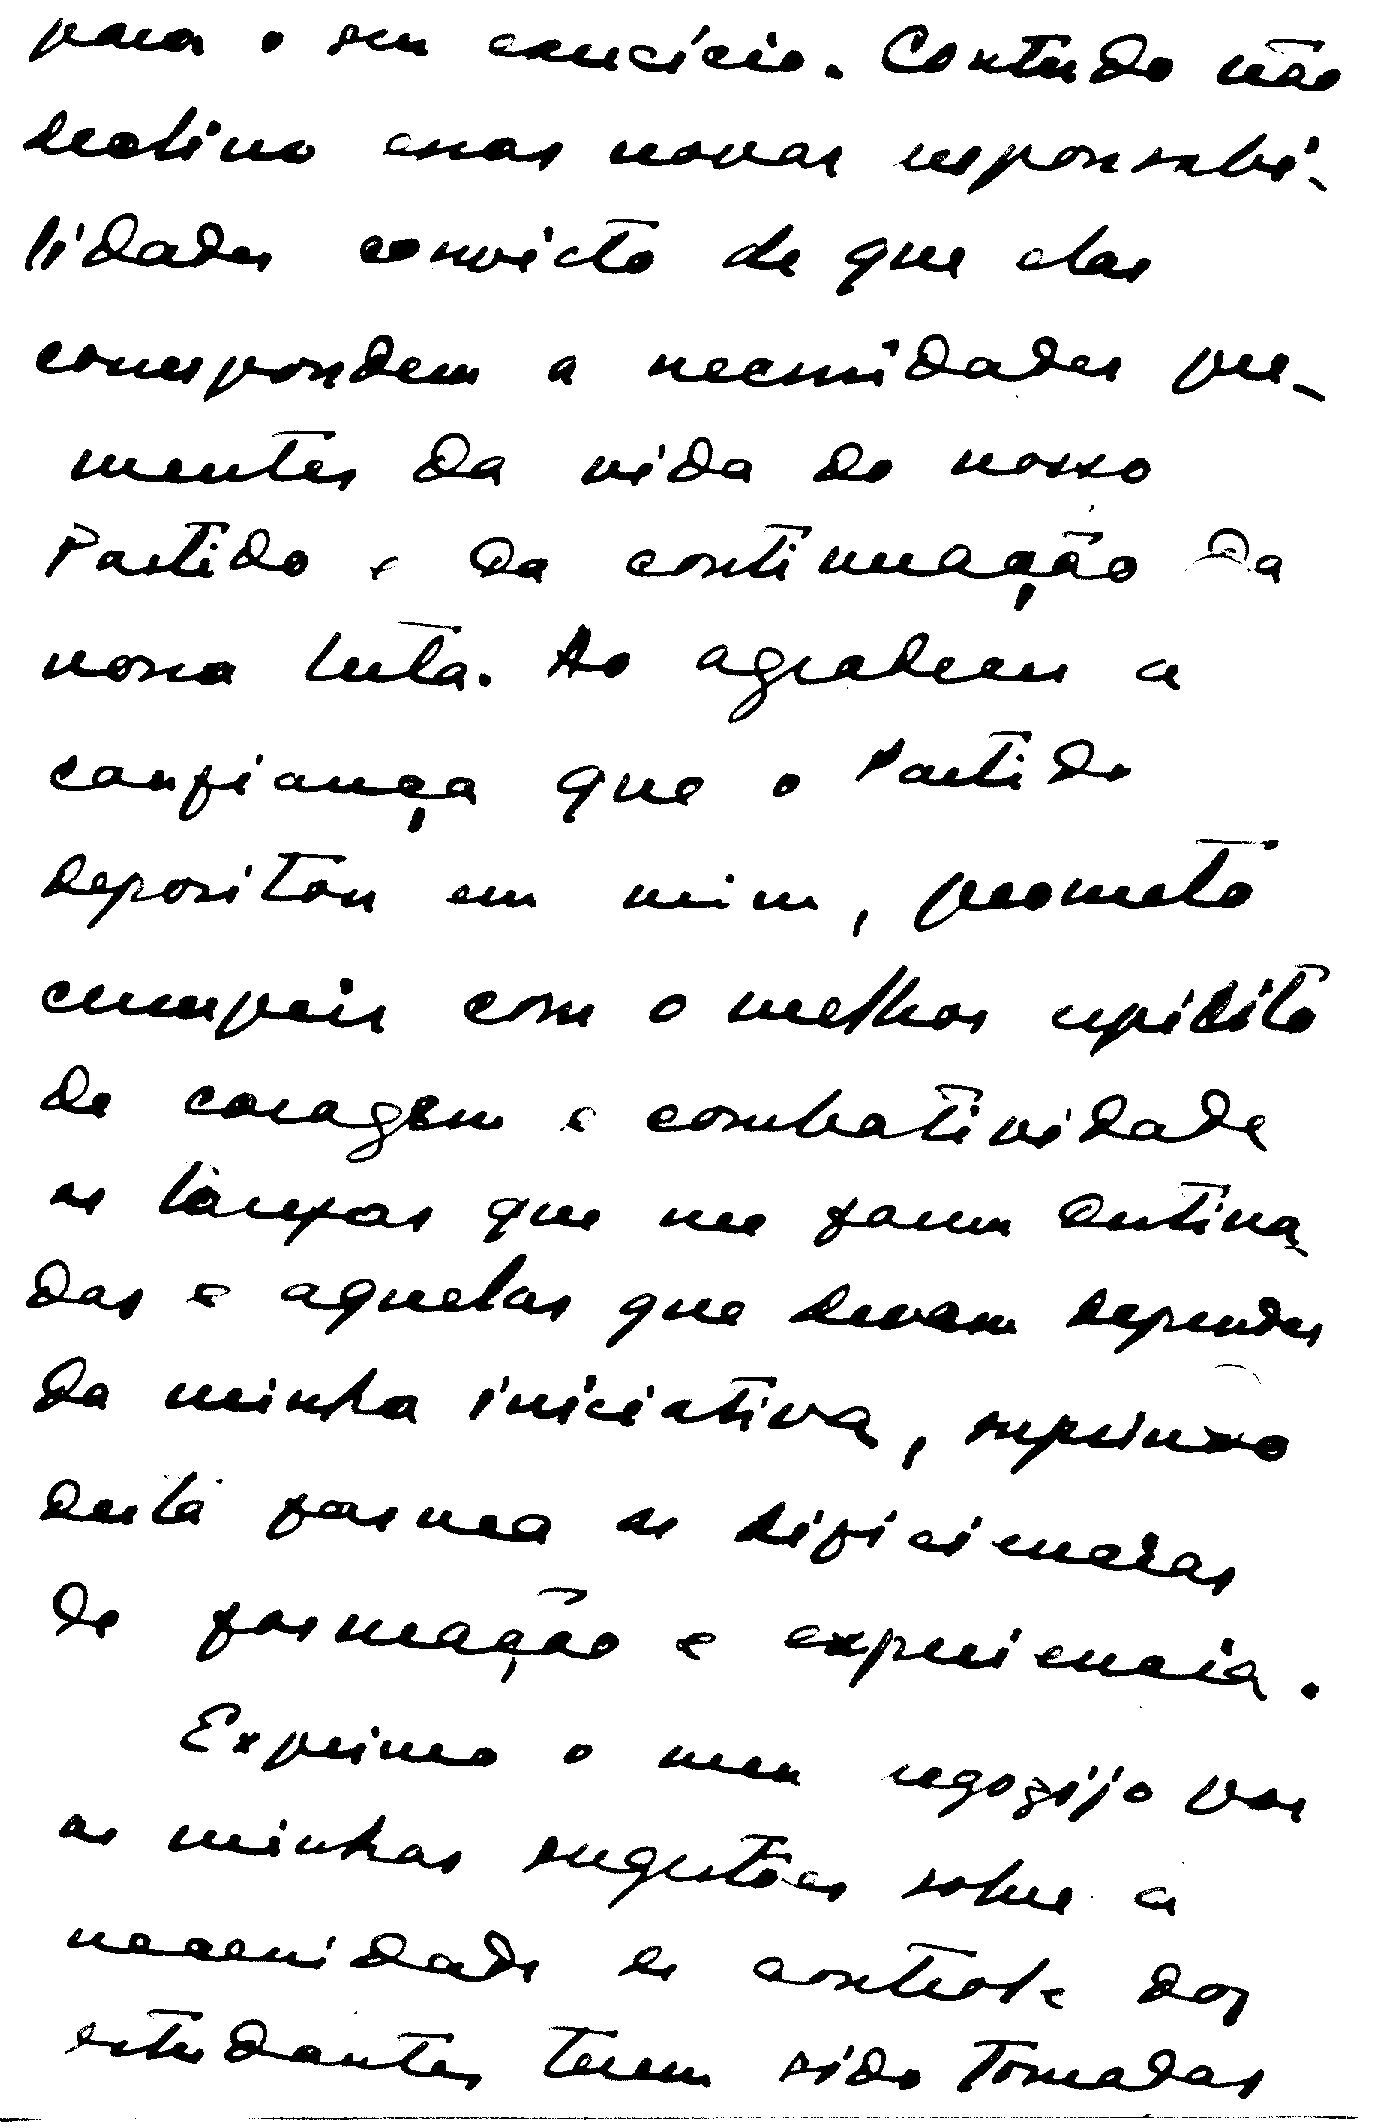 para o seu exercício. Contudo não
declino essas novas responsabi-
lidades convicto de que elas
correspondem a necessidades pre-
mentes da vida do nosso
Partido e da continuação da
nossa luta. Ao agradecer a
confiança que o Partido
depositou em mim, prometo
cumprir com o melhor espírito
de coragem e combatividade
as tarefas que me foram destina-
das e aquelas que devam depender
da minha iniciativa, suprindo
desta forma as dificiencias
de formação e experiencia.
Exprimo o meu regozijo por
as minhas sugestões sobre a
necessidade de controle dos
estudantes terem sido tomadas